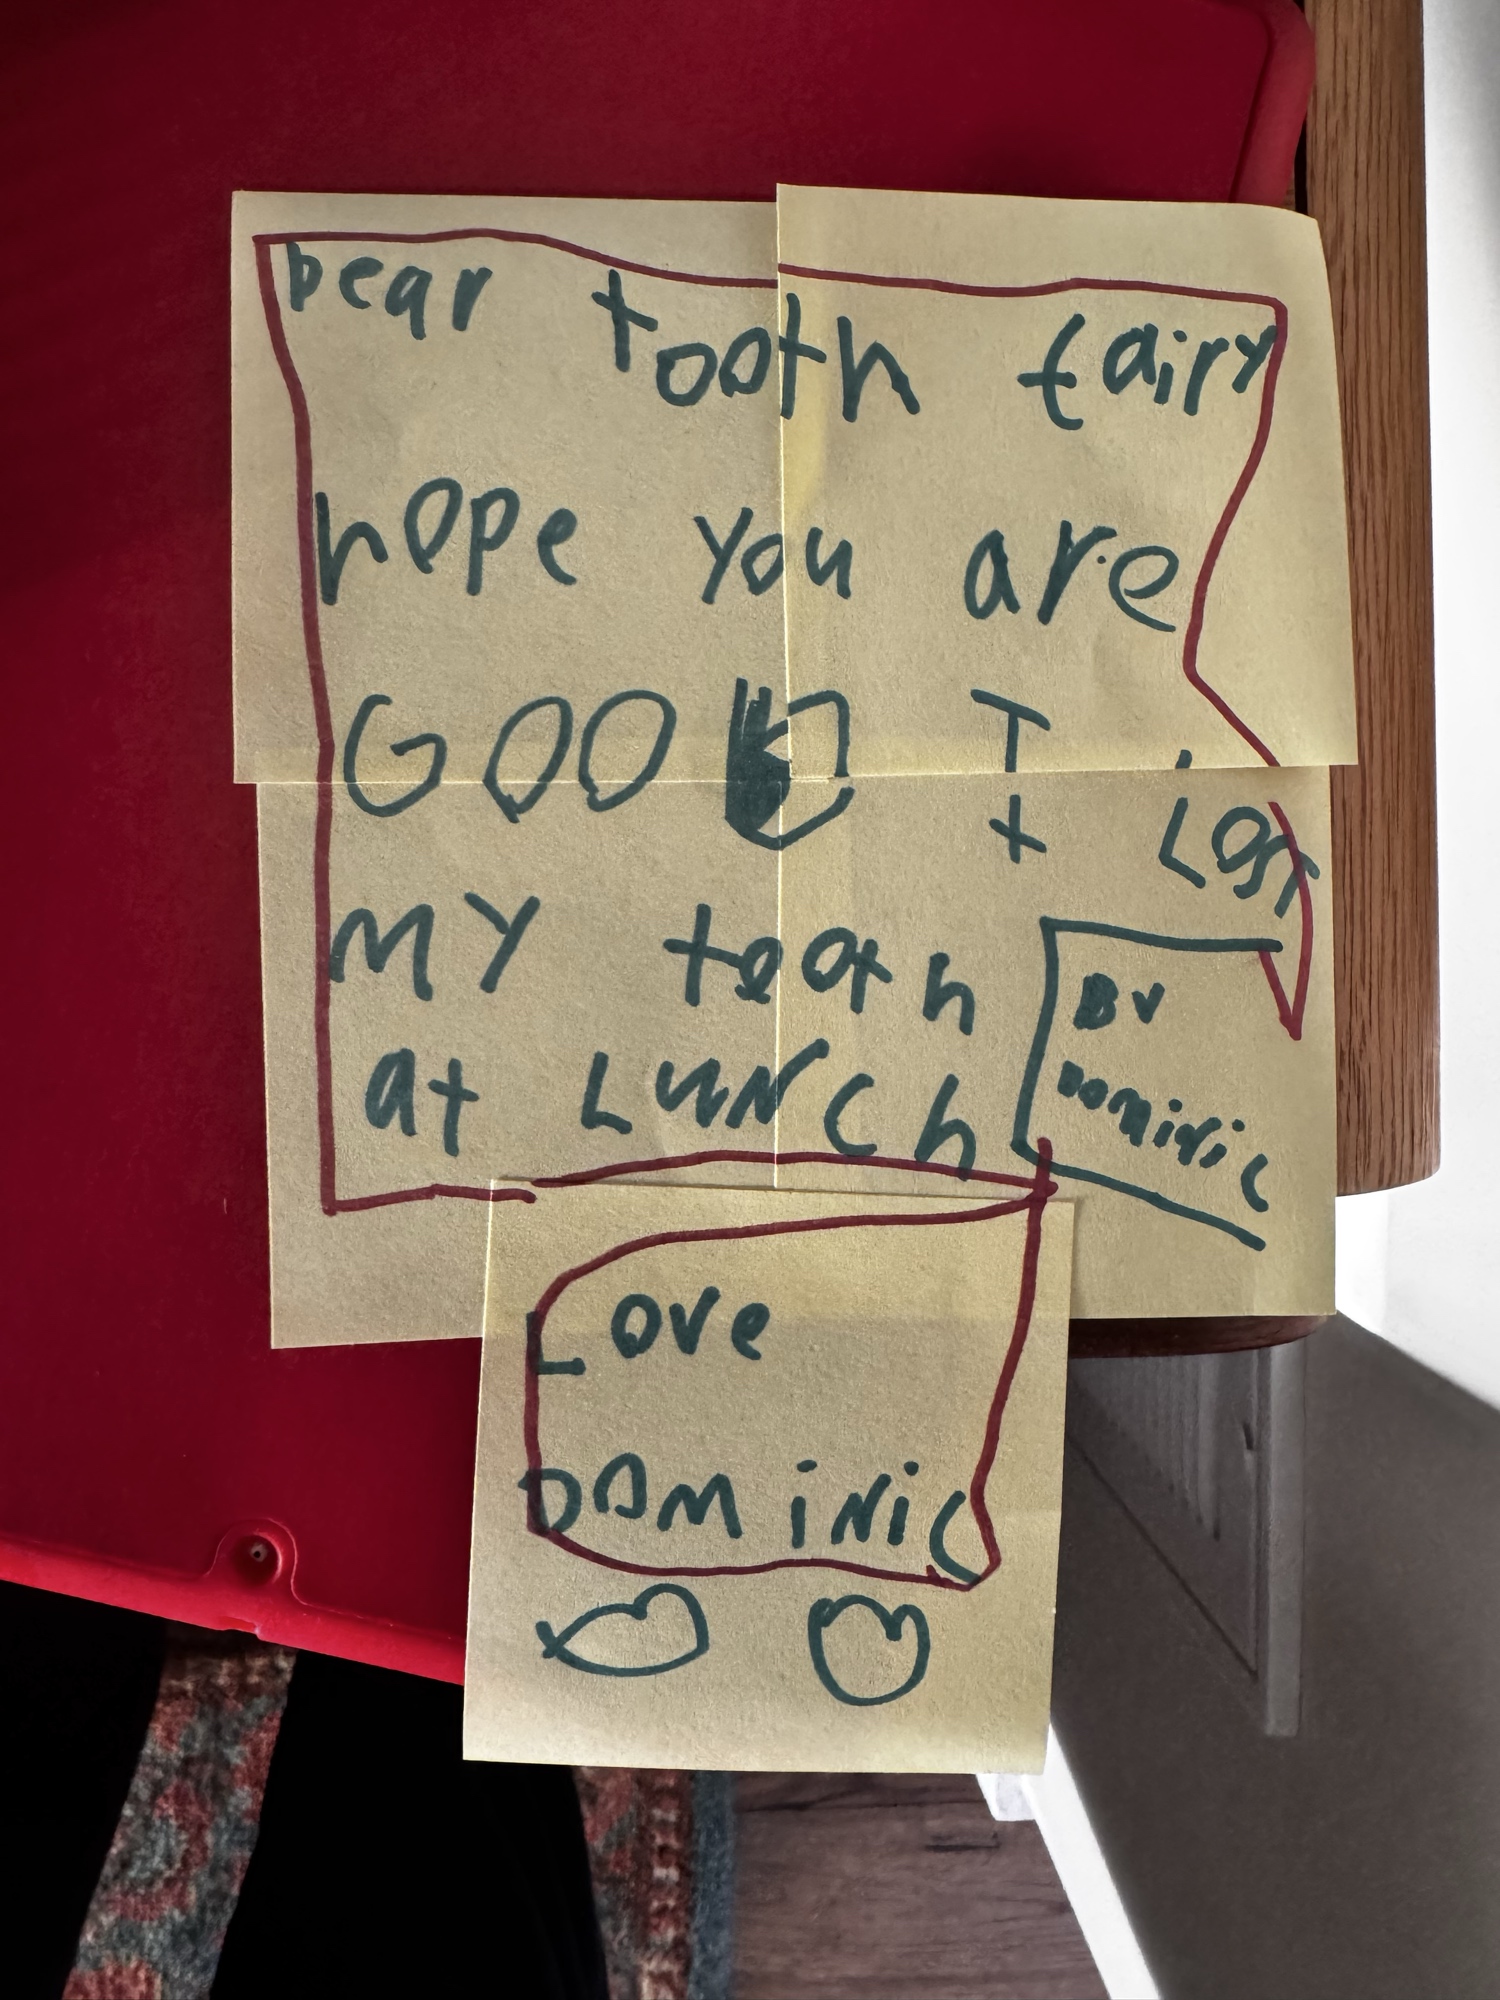 Dear tooth fairy
hope you are
GOOD I Lost
MY tooth
at LUNCh
BY
Dominic
Love
DOMiNiC